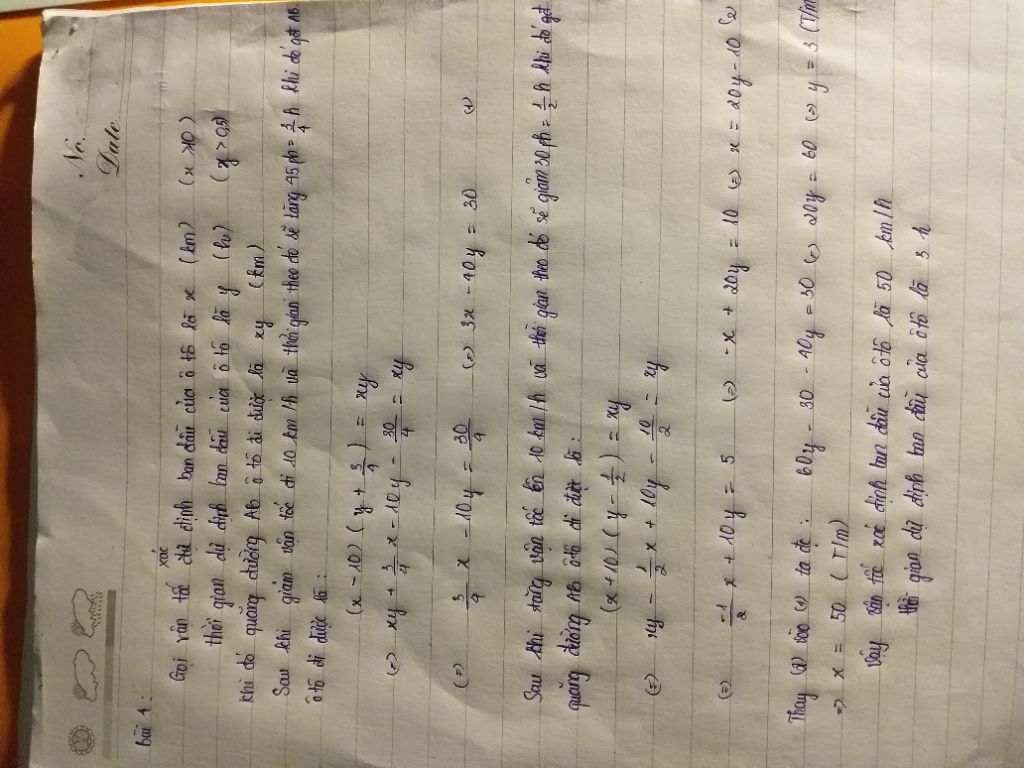 No.
Date
bài 4:
xác
Gọi vận tốc dự định ban đầu của ô tô là x (km) (x > 10)
thời gian dự định ban đầu của ô tô là y (h) (y > 0,5)
khi đó quãng đường AB ô tô đi được là xy (km)
Sau khi giảm vận tốc đi 10 km/h và thời gian theo đó sẽ tăng 45 ph = 3/4 h khi đó qđ AB
ô tô đi được là:
(x - 10) (y + 3/4) = xy
(=) xy + 3/4 x - 10y - 30/4 = xy
(=) 3/4 x - 10y = 30/4 (=) 3x - 40y = 30 (1)
Sau khi tăng vận tốc lên 10 km/h và thời gian theo đó sẽ giảm 30 ph = 1/2 h khi đó qđ
quãng đường AB ô tô đi được là:
(x + 10) (y - 1/2) = xy
(=) xy - 1/2 x + 10y - 10/2 = xy
(=) -1/2 x + 10y = 5 (=) -x + 20y = 10 (=) x = 20y - 10 (2
Thay (2) vào (1) ta đc: 60y - 30 - 40y = 30 (=) 20y = 60 (=) y = 3 (Tm
=> x = 50 (Tm)
Vậy vận tốc xác định ban đầu của ô tô là 50 km/h
thời gian dự định ban đầu của ô tô là 3 h